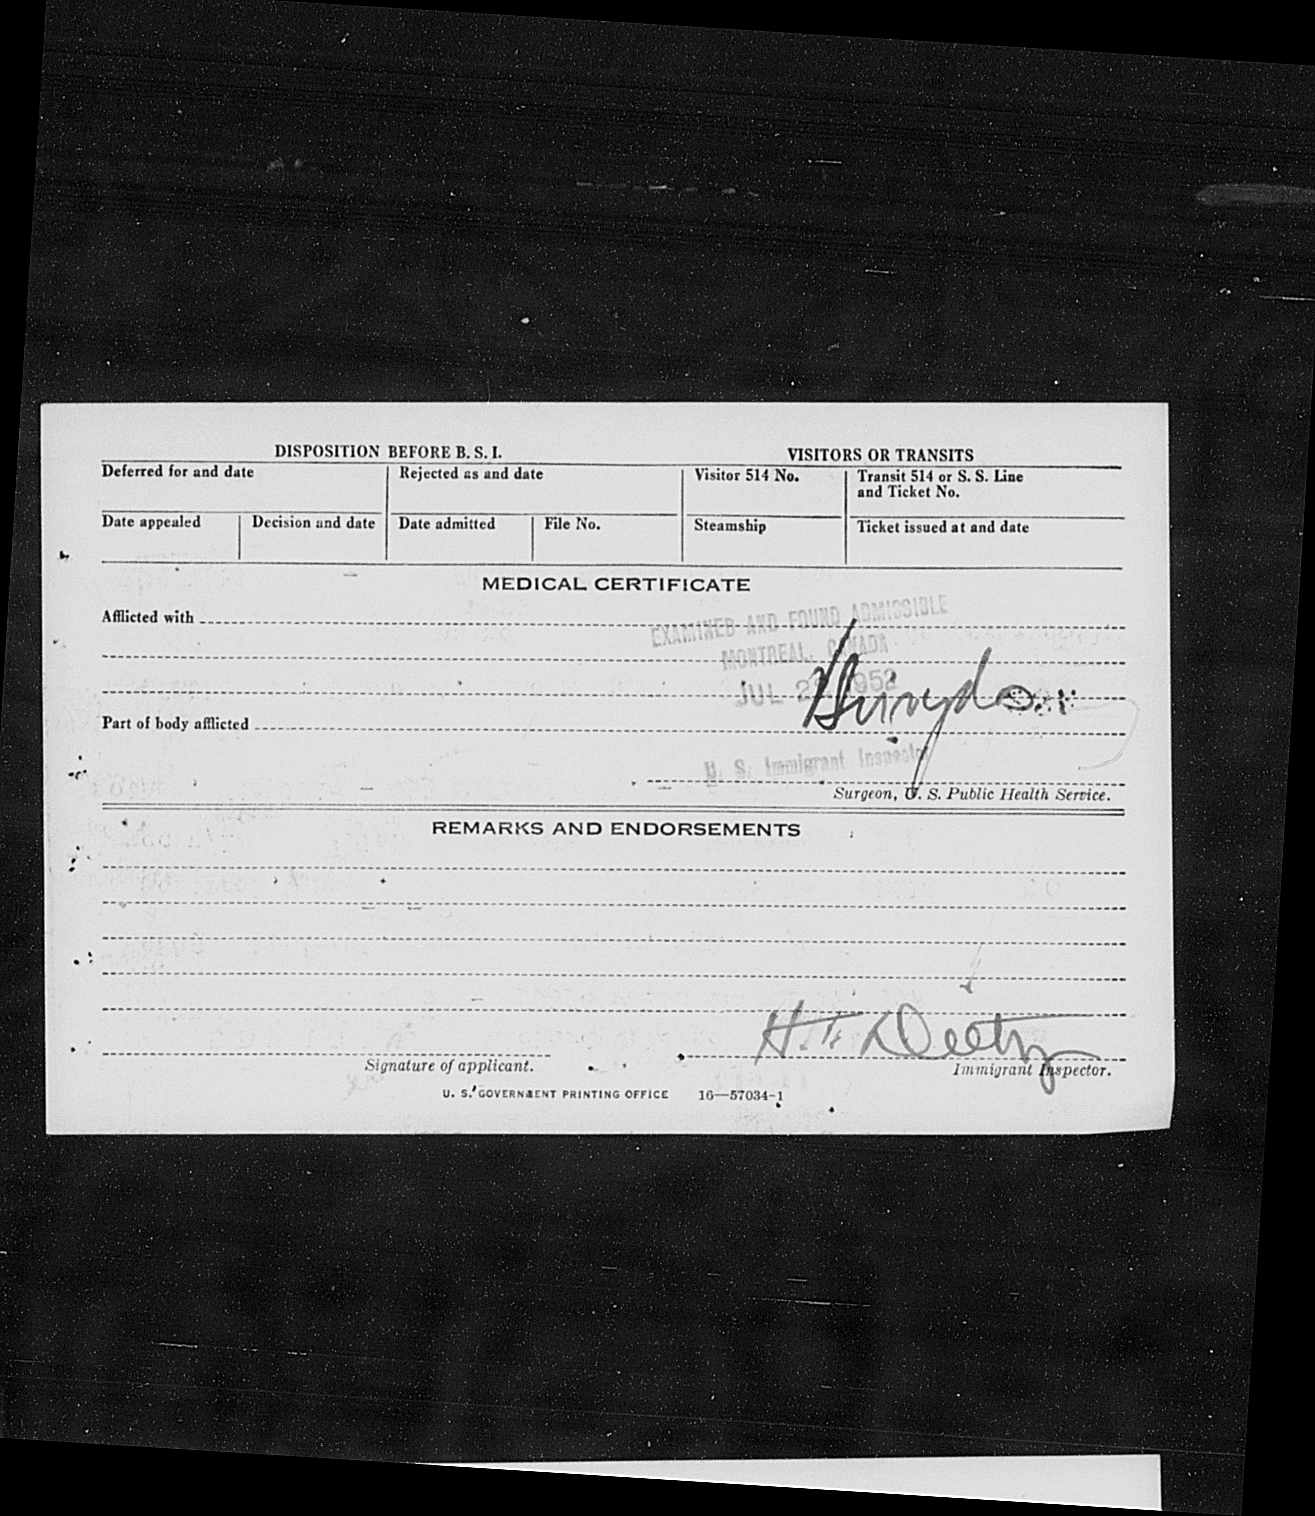 DISPOSITION BEFORE B. S. I.
VISITORS OR TRANSITS
Deferred for and date
Rejected as and date
Visitor 514 No.
Transit 514 or S. S. Line
and Ticket No.
Date appealed
Decision and date
Date admitted
File No.
Steamship
Ticket issued at and date
MEDICAL CERTIFICATE
Afflicted with
EXAMINED AND FOUND ADMISSIBLE
MONTREAL, CANADA
JUL 1952
Part of body afflicted
U. S. Immigrant Inspector
Surgeon, U. S. Public Health Service.
REMARKS AND ENDORSEMENTS
Signature of applicant.
Immigrant Inspector.
U. S. GOVERNMENT PRINTING OFFICE 16—57034-1